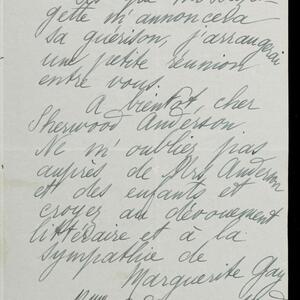 gette m'annoncera
sa guérison, j'arrangerai
une petite réunion
entre vous.
A bientôt, cher
Sherwood Anderson.
Ne m'oubliez pas
auprès de Mrs Anderson
et des enfants et
croyez au dévouement
littéraire et à la
sympathie de
Marguerite Gay